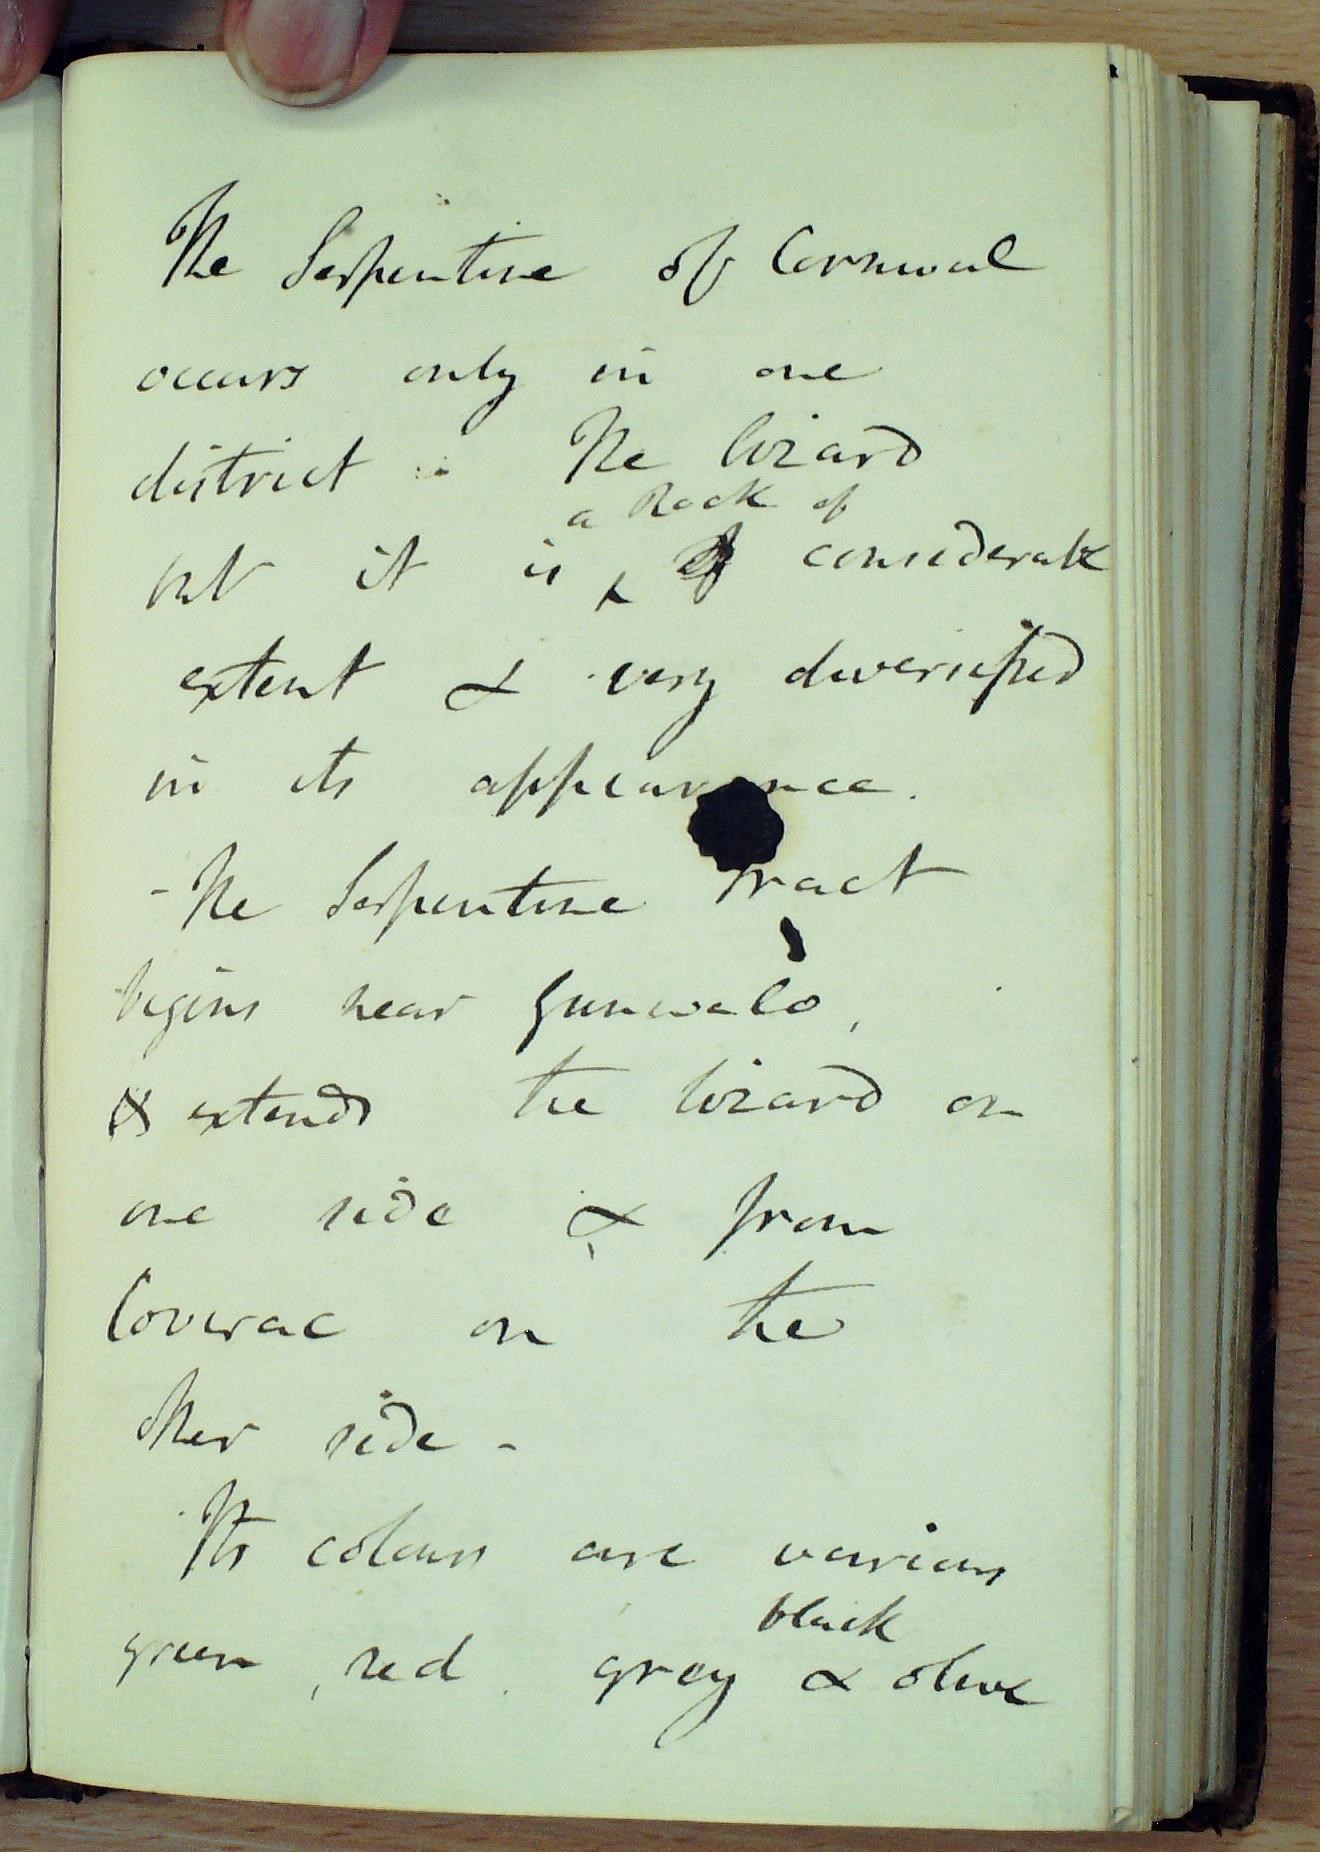 The Serpentine of Cornwal
occurs only in one
district - The Lizard
a Rock of
but it is considerable
extent & very diversified
in its appearance.
- The Serpentine Tract
begins near Gunwalo,
& extends the Lizard on
one side & from
Coverac on the
other side -
Its colours are various
black
green, red, grey & olive